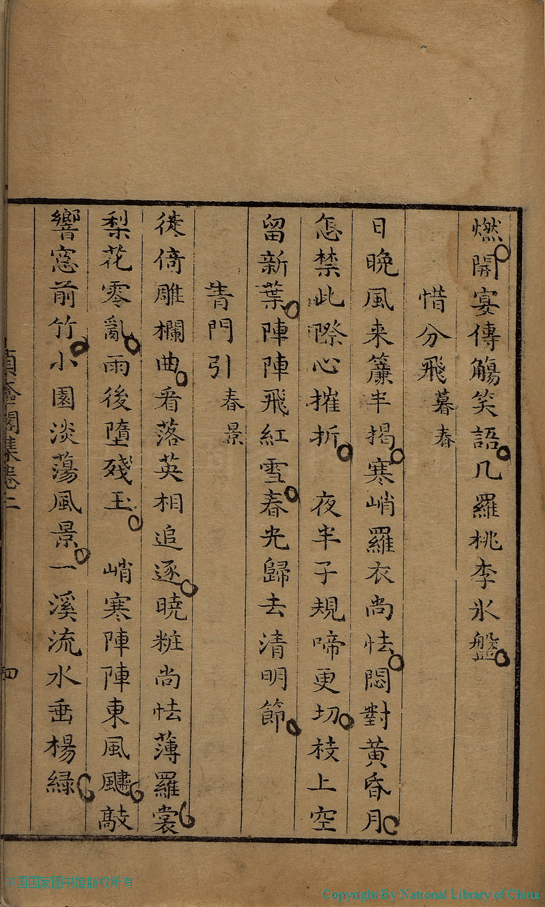 燃開宴傳觴笑語几羅桃李氷盤
惜分飛 暮春
日晚風来簾半揭寒峭羅衣尚怯悶對黄昏月
怎禁此際心摧折 夜半子規啼更切枝上空
留新葉陣陣飛紅雪春光歸去清明節
青門引 春景
徙倚雕欄曲看落英相追逐曉粧尚怯薄羅裳
梨花零亂雨後墮殘玉 峭寒陣陣東風颺敲
響窓前竹小園淡蕩風景一溪流水垂楊緑
閣集卷二
四
Copyright By National Library of China